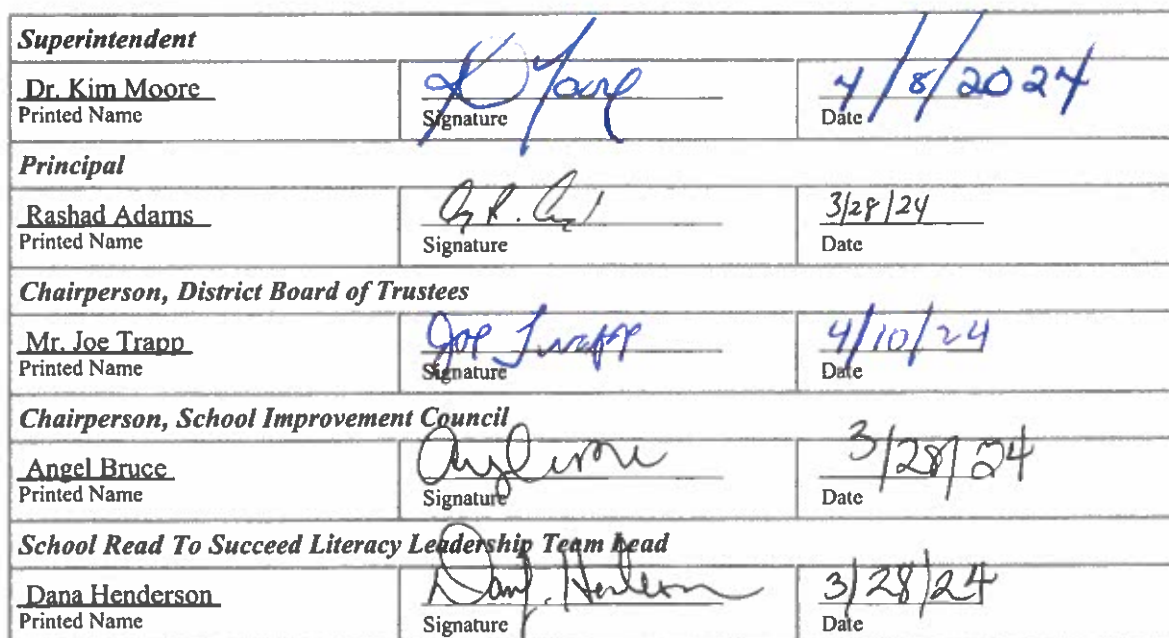 Superintendent
Dr. Kim Moore
4/8/2024
Printed Name
Signature
Date
Principal
Rashad Adams
3/28/24
Printed Name
Signature
Date
Chairperson, District Board of Trustees
Mr. Joe Trapp
Joe Trapp
4/10/24
Printed Name
Signature
Date
Chairperson, School Improvement Council
Angel Bruce
3/28/24
Printed Name
Signature
Date
School Read To Succeed Literacy Leadership Team Lead
Dana Henderson
3/28/24
Printed Name
Signature
Date